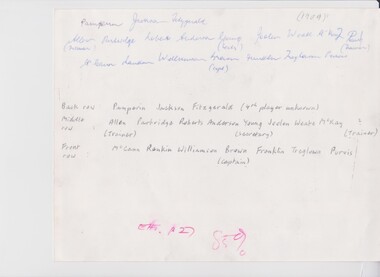 Pamperin Jackson Fitzgerald (1909)
Allen Partridge Roberts Anderson Young Joslen Woate McKay
(trainer) (sec)
McCann Rankin Williamson Brown Franklin Purvis
(capt)
Back row Pamperin Jackson Fitzgerald (4th player unknown)
Middle row Allen Partridge Roberts Anderson Young Joslen Woate McKay ?
(trainer) (secretary) (trainer)
Front row McCann Rankin Williamson Brown Franklin Treglown Purvis
(captain)
85%